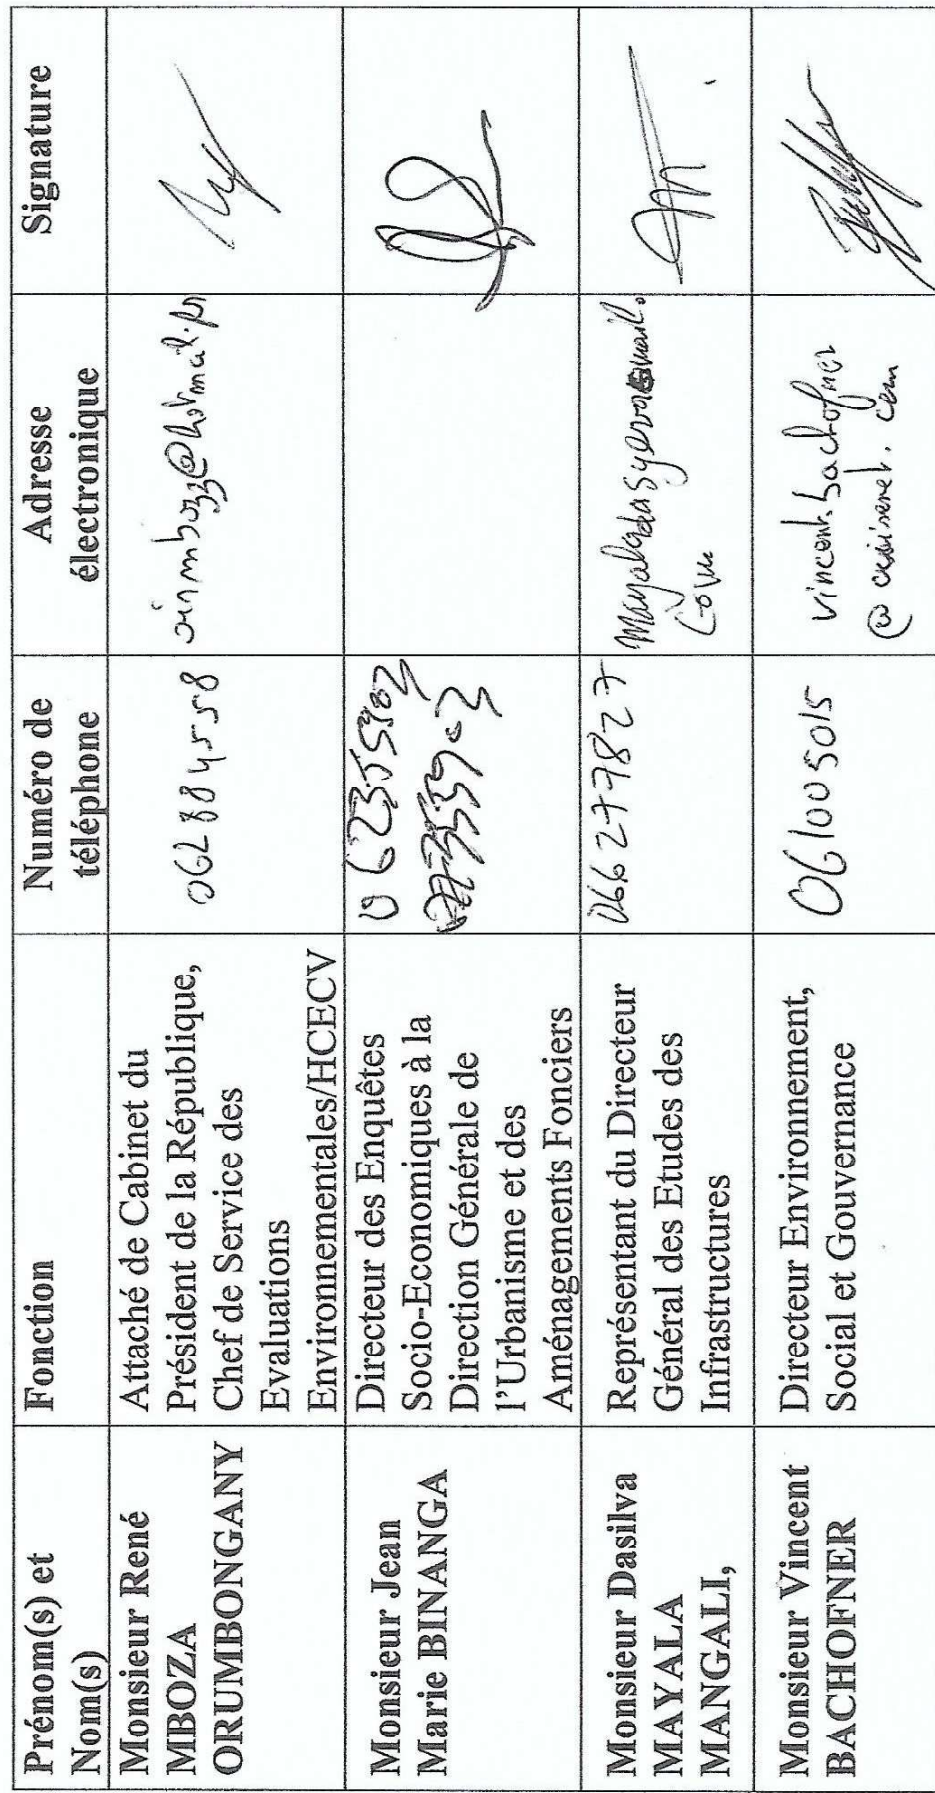 Prénom(s) et
Nom(s)
Fonction
Numéro de
téléphone
Adresse
électronique
Signature
Monsieur René
MBOZA
ORUMBONGANY
Attaché de Cabinet du
Président de la République,
Chef de Service des
Evaluations
Environnementales/HCECV
Monsieur Jean
Marie BINANGA
Directeur des Enquêtes
Socio-Economiques à la
Direction Générale de
l'Urbanisme et des
Aménagements Fonciers
Monsieur Dasilva
MAYALA
MANGALI,
Représentant du Directeur
Général des Etudes des
Infrastructures
066277827
Monsieur Vincent
BACHOFNER
Directeur Environnement,
Social et Gouvernance
061005015
vincent.bachofner